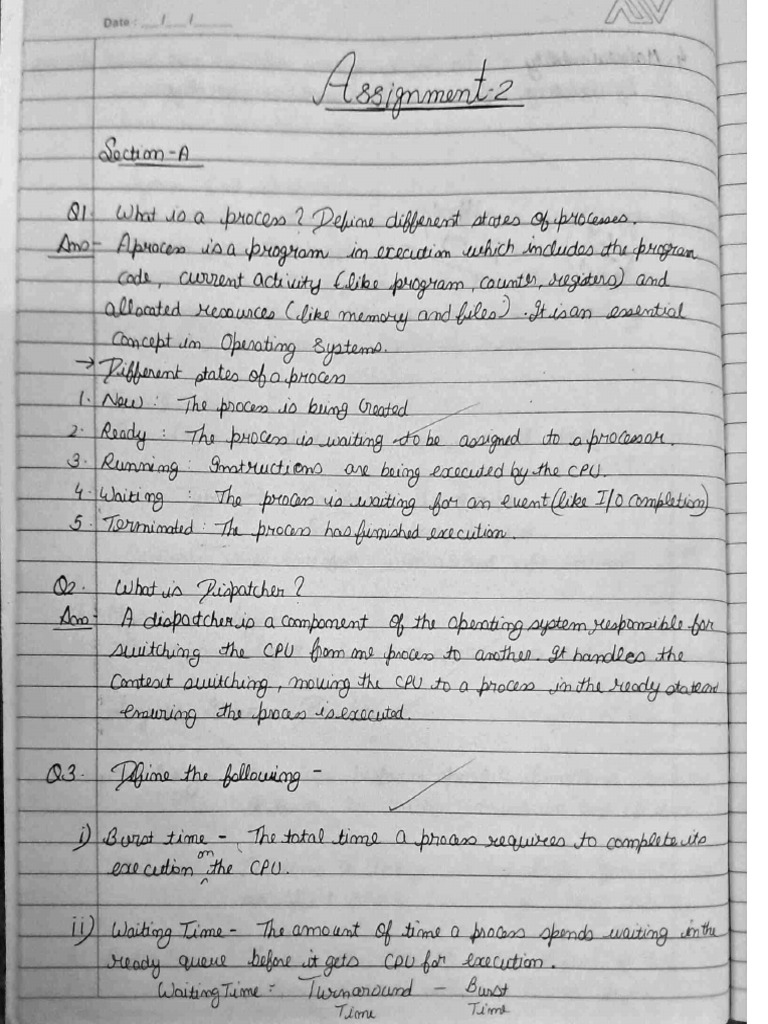 Date: __/__/__
Assignment-2
Section-A
Q1. What is a process? Define different states of processes.
Ans- A process is a program in execution which includes the program
code, current activity (like program, counter, registers) and
allocated resources (like memory and files). It is an essential
concept in Operating Systems.
→ Different states of a process
1. New: The process is being Created
2. Ready: The process is waiting to be assigned to a processor.
3. Running: Instructions are being executed by the CPU.
4. Waiting: The process is waiting for an event (like I/O completion)
5. Terminated: The process has furnished execution.
Q2. What is Dispatcher?
Ans- A dispatcher is a component of the operating system responsible for
switching the CPU from one process to another. It handles the
context switching, moving the CPU to a process in the ready state and
ensuring the process is executed.
Q3. Define the following -
i) Burst time - The total time a process requires to complete its
execution on the CPU.
ii) Waiting Time - The amount of time a process spends waiting in the
ready queue before it gets CPU for execution.
Waiting Time = Turnaround Time - Burst Time